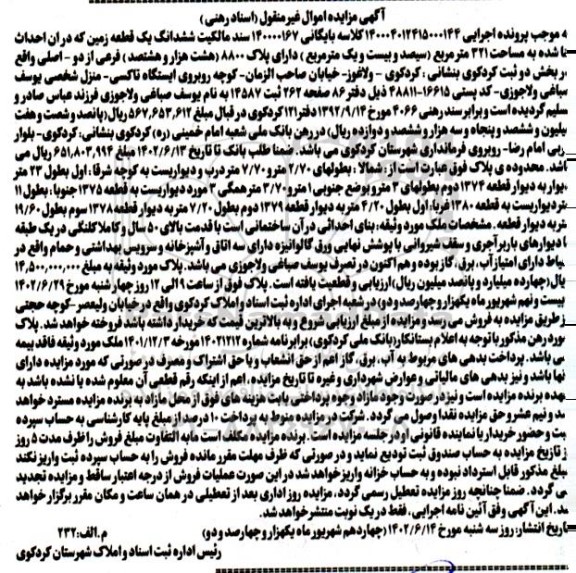 آگهی مزایده اموال غیر منقول (اسناد رهنی)
ه موجب پرونده اجرایی ۱۴۰۰۰۴۰۱۲۴۱۵۰۰۰۱۴۴ کلاسه بایگانی ۱۴۰۰۰۱۶۷ سند مالکیت ششدانگ یک قطعه زمین که در ان احداث
نا شده به مساحت ۳۲۱ متر مربع (سیصد و بیست و یک مترمربع) دارای پلاک ۸۸۰۰ (هشت هزار و هشتصد) فرعی از دو - اصلی واقع
ر بخش دو ثبت کردکوی بنشانی : کردکوی - ولاغوز- خیابان صاحب الزمان- کوچه روبروی ایستگاه تاکسی- منزل شخصی یوسف
صباغی ولاجوزی- کد پستی ۱۶۶۱۵-۴۸۸۱۱ ذیل دفتر ۸۶ صفحه ۲۶۲ ثبت ۱۴۵۸۷ به نام یوسف صباغی ولاجوزی فرزند عباس صادر و
سلیم گردیده است و برابر سند رهنی ۴۰۶۶ مورخ ۱۳۹۲/۹/۱۴ دفتر ۱۲۱ کردکوی در قبال مبلغ ۵۶۷,۶۵۳,۶۱۲ ریال (پانصد و شصت و هفت
میلیون و ششصد و پنجاه و سه هزار و ششصد و دوازده ریال) در رهن بانک ملی شعبه امام خمینی (ره) کردکوی بنشانی: کردکوی- بلوار
ربی امام رضا- روبروی فرمانداری شهرستان کردکوی می باشد. ضمنا طلب بانک تا تاریخ ۱۴۰۲/۶/۱۳ مبلغ ۶۵۱,۸۰۳,۹۹۴ ریال می
باشد. محدوده ی پلاک فوق عبارت است از: شمالا : بطولهای ۲/۷۰ مترو ۷/۷۰ متر درب و دیواریست به کوچه شرقا: اول بطول ۲۳ متر
یوار به دیوار قطعه ۱۳۷۴ دوم بطولهای ۳ مترو بوضع جنوبی ۱ مترو ۳/۷۰ متر همگی ۳ مورد دیواریست به قطعه ۱۳۷۵ جنوبا: بطول ۱۱
تر دیواریست به قطعه ۱۳۸۰ غربا: اول بطول ۴/۲۰ متر به دیوار قطعه ۱۳۷۹ دوم بطول ۷/۲۰ متر به دیوار قطعه ۱۳۷۸ سوم بطول ۱۹/۶۰
تر به دیوار قطعه . مشخصات ملک مورد وثیقه: بنای احداثی در آن ساختمانی است با قدمت بالای ۵۰ سال و کاملا کلنگی در یک طبقه
ا دیوارهای باربر آجری و سقف شیروانی با پوشش نهایی ورق گالوانیزه دارای سه اتاق و آشپزخانه و سرویس بهداشتی و حمام واقع در
یاط دارای امتیاز آب، برق، گاز بوده و هم اکنون در تصرف یوسف صباغی ولاجوزی می باشد. پلاک مورد وثیقه به مبلغ ۱۴,۵۰۰,۰۰۰,۰۰۰
یال (چهارده میلیارد و پانصد میلیون ریال) ارزیابی و قطعیت یافته است. پلاک فوق از ساعت ۹ الی ۱۲ روز چهار شنبه مورخ ۱۴۰۲/۶/۲۹
بیست و نهم شهریور ماه یکهزار و چهارصد و دو) در شعبه اجرای اداره ثبت اسناد و املاک کردکوی واقع در خیابان ولیعصر-کوچه حجتی
ز طریق مزایده به فروش می رسد و مزایده از مبلغ ارزیابی شروع و به بالاترین قیمت که خریدار داشته باشد فروخته خواهد شد. پلاک
ورد رهن مذکور با توجه به اعلام بستانکار (بانک ملی کردکوی) برابر نامه شماره ۱۴۰۲۱۲۱۲ مورخه ۱۴۰۱/۱۲/۳ ملک مورد وثیقه فاقد بیمه
ی باشد. پرداخت بدهی های مربوط به آب، برق، گاز اعم از حق انشعاب و یا حق اشتراک و مصرف در صورتی که مورد مزایده دارای
نها باشد و نیز بدهی های مالیاتی و عوارض شهرداری و غیره تا تاریخ مزایده ، اعم از اینکه رقم قطعی آن معلوم شده یا نشده باشد به
هده برنده مزایده است و نیز در صورت وجود مازاد وجوه پرداختی بابت هزینه های فوق از محل مازاد به برنده مزایده مسترد خواهد
د و نیم عشر و حق مزایده نقدا وصول می گردد. شرکت در مزایده منوط به پرداخت ۱۰ درصد از مبلغ پایه کارشناسی به حساب سپرده
بت و حضور خریدار یا نماینده قانونی او در جلسه مزایده است. برنده مزایده مکلف است مابه التفاوت مبلغ فروش را ظرف مدت ۵ روز
ز تاریخ مزایده به حساب صندوق ثبت تودیع نماید و در صورتی که ظرف مهلت مقرر مانده فروش را به حساب سپرده ثبت واریز نکند
بلغ مذکور قابل استرداد نبوده و به حساب خزانه واریز خواهد شد در این صورت عملیات فروش از درجه اعتبار ساقط و مزایده تجدید
ی گردد. ضمنا چنانچه روز مزایده تعطیل رسمی گردد، مزایده روز اداری بعد از تعطیلی در همان ساعت و مکان مقرر برگزار خواهد
د. این آگهی وفق آئین نامه اجرایی، فقط در یک نوبت منتشر خواهد شد.
اریخ انتشار: روز سه شنبه مورخ ۱۴۰۲/۶/۱۴ (چهاردهم شهریور ماه یکهزار و چهارصد و دو) م.الف: ۲۳۲
رئیس اداره ثبت اسناد و املاک شهرستان کردکوی